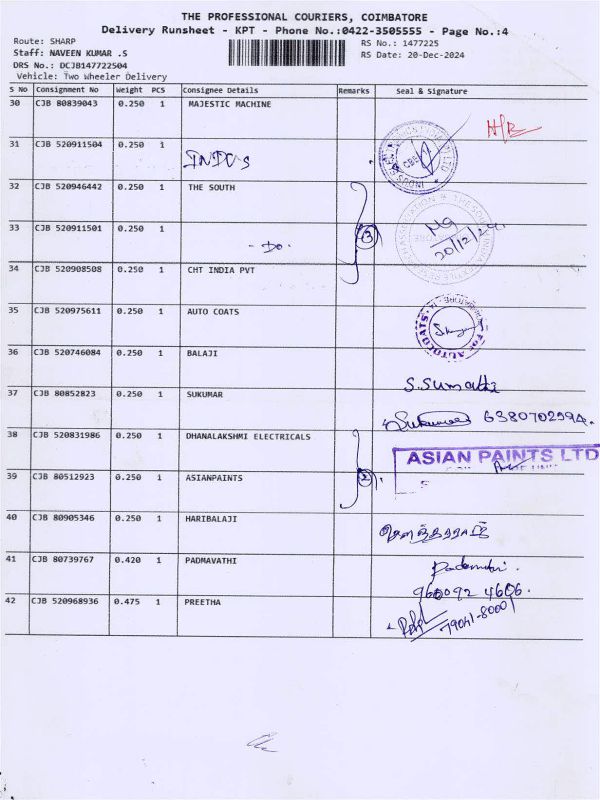 THE PROFESSIONAL COURIERS, COIMBATORE
Delivery Runsheet - KPT - Phone No.:0422-3505555 - Page No.:4
Route: SHARP
RS No.: 1477225
Staff: NAVEEN KUMAR .S
RS Date: 20-Dec-2024
DRS No.: DCJB147722504
Vehicle: Two Wheeler Delivery
S No Consignment No Weight PCS Consignee Details Remarks Seal & Signature
30 CJB 80839043 0.250 1 MAJESTIC MACHINE
31 CJB 520911504 0.250 1 INDUS
32 CJB 520946442 0.250 1 THE SOUTH
33 CJB 520911501 0.250 1 - Do - 3
20/12/24
34 CJB 520908508 0.250 1 CHT INDIA PVT
35 CJB 520975611 0.250 1 AUTO COATS
For AUTOCOATS
36 CJB 520746084 0.250 1 BALAJI
S.Sumathi
37 CJB 80852823 0.250 1 SUKUMAR
6380702994
38 CJB 520831986 0.250 1 DHANALAKSHMI ELECTRICALS
ASIAN PAINTS LTD
39 CJB 80512923 0.250 1 ASIANPAINTS 2
40 CJB 80905346 0.250 1 HARIBALAJI
41 CJB 80739767 0.420 1 PADMAVATHI
960092 4606.
42 CJB 520968936 0.475 1 PREETHA
79041-80001